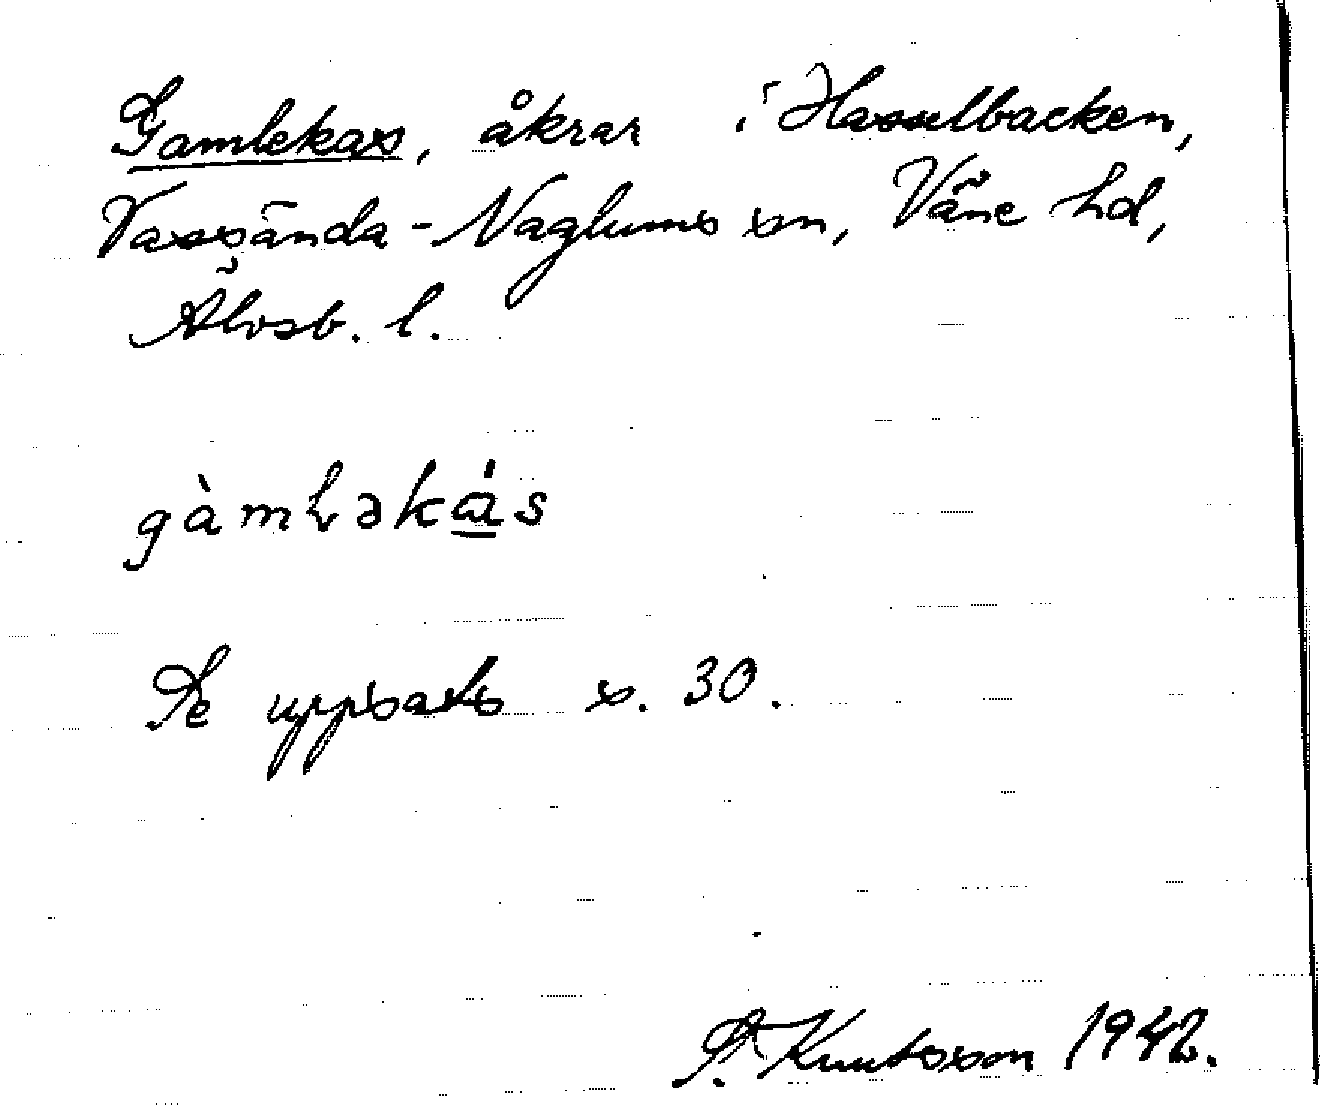 Gamlekas, åkrar i Hasselbacken,
Vassända-Naglums sn, Väne hd,
Älvsb. l.
gàmlǝkás
Se uppsats s. 30.
S. Knutsson 1942.